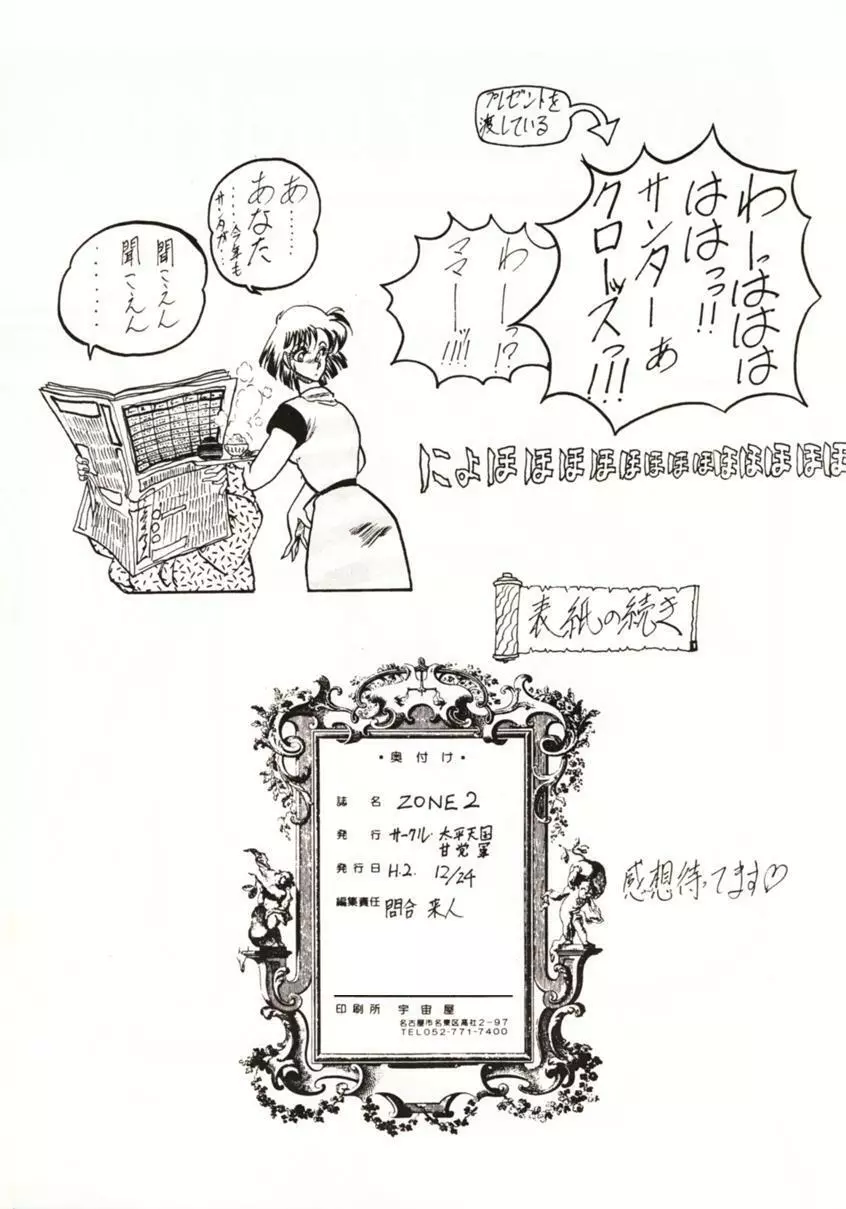 プレゼントを
渡している
わーっははは
ははっっ!!
サンターぁ
クロ―ッスっ!!!
わーっ!?
ママーッ!!!!
あ……
あなた
……今年も
サンタが…
聞こえん
聞こえん
……
にょほほほほほほほほほほほほほ
表紙の続き
・奥付け・
誌名 ZONE2
発行 サークル・太平天国
甘党軍
発行日 H.2. 12/24
編集責任 問合 来人
印刷所 宇宙屋
名古屋市名東区高社2-97
TEL052-771-7400
感想待ってます♡